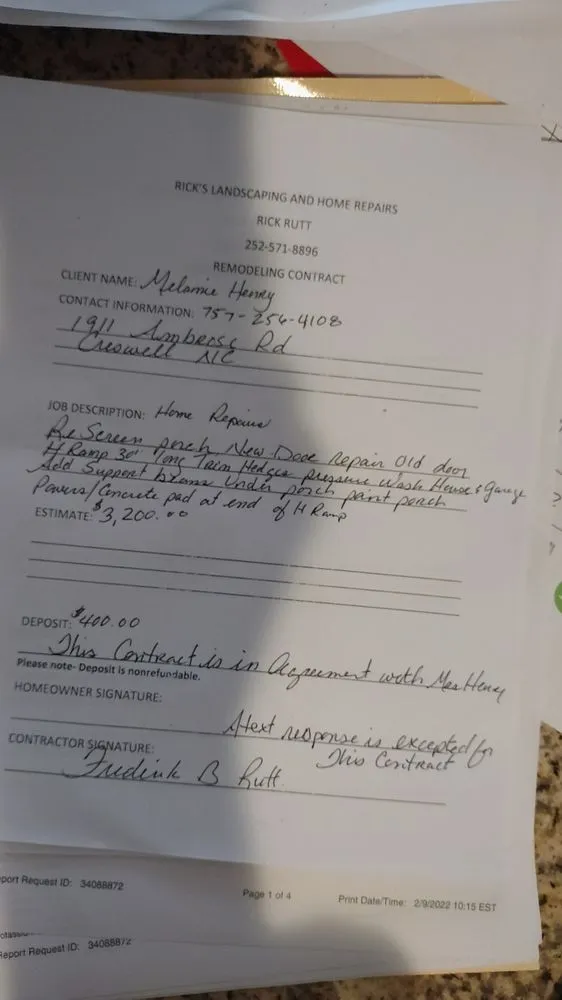 RICK'S LANDSCAPING AND HOME REPAIRS
RICK RUTT
252-571-8896
REMODELING CONTRACT
CLIENT NAME: Melanie Henry
CONTACT INFORMATION: 757-256-4108
1911 Ambersc Rd
Creswell NC
JOB DESCRIPTION: Home Repairs
Re Screen porch New Door repair Old door
H Ramp 30' long Trim Hedges pressure Wash House & Garage
Add Support beams Under porch paint porch
Pavers/Concrete pad at end of H Ramp
ESTIMATE: $3,200.00
DEPOSIT: $400.00
This Contract is in Agreement with Mrs Henry
Please note- Deposit is nonrefundable.
HOMEOWNER SIGNATURE:
A text response is excepted for
This Contract
CONTRACTOR SIGNATURE:
Fredrick B Rutt
port Request ID: 34088872
Page 1 of 4
Print Date/Time: 2/9/2022 10:15 EST
Report Request ID: 34088872